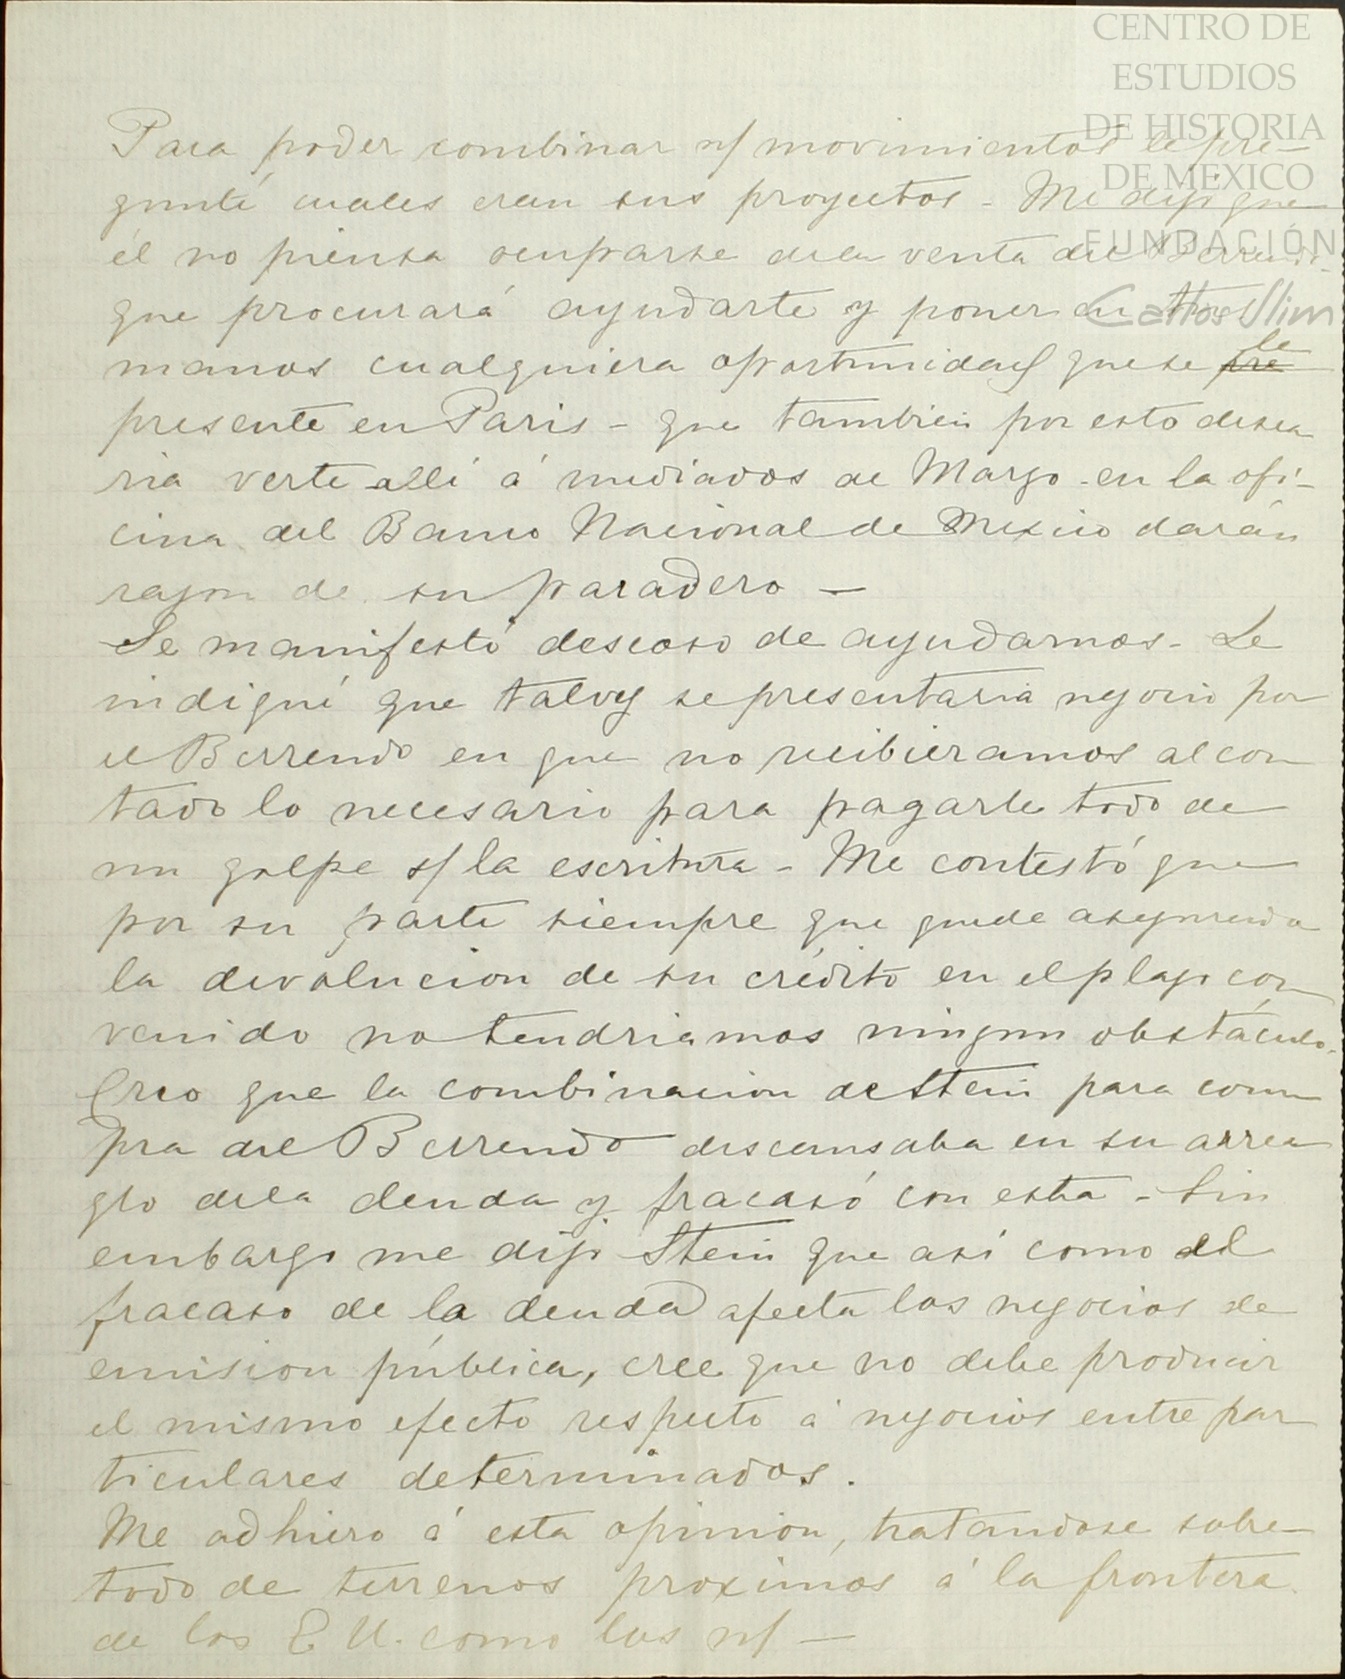 CENTRO DE
ESTUDIOS
DE HISTORIA
DE MÉXICO
FUNDACIÓN
Carlos Slim
Para poder combinar n/ movimientos le pre-
gunté cuales eran sus proyectos - Me dijo que
él no piensa ocuparse dela venta del Berrendo
que procurará ayudarte y poner en tus
manos cualquiera oportunidad que se le
presente en Paris - que tambien por esto desea
ria verte allí á mediados de Marzo - en la ofi-
cina del Banco Nacional de Mexico darán
razon de su paradero —
Se manifestó deseoso de ayudarnos - Le
indiqué que talvez se presentaria negocio por
el Berrendo en que no recibieramos al con
tado lo necesario para pagarle todo de
un golpe s/ la escritura - Me contestó que
por su parte siempre que quede asegurada
la devolucion de su crédito en el plazo con
venido no tendriamos ningun obstáculo.
Creo que la combinacion de Stein para com
pra del Berrendo descansaba en su arre
glo dela deuda y fracasó con esta - Sin
embargo me dijo Stein que asi como el
fracaso de la deuda afecta los negocios de
emision pública, cree que no debe producir
el mismo efecto respecto á negocios entre par
ticulares determinados.
Me adhiero á esta opinion, tratandose sobre
todo de terrenos proximos á la frontera
de los E U. como los n/ —